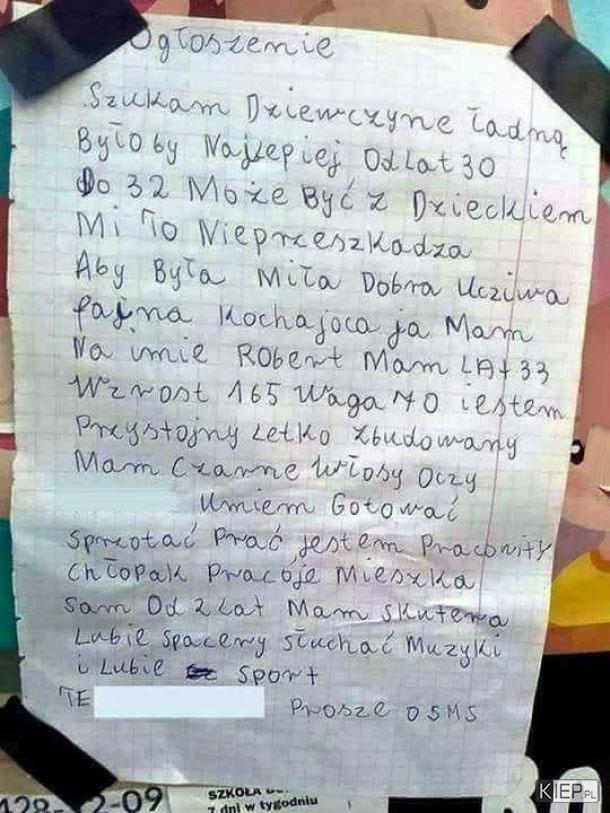 Ogłoszenie
Szukam Dziewczyne Ładną
Było by Najlepiej Od Lat 30
Do 32 Może Być z Dzieckiem
Mi To Nieprzeszkadza
Aby Była Miła Dobra Uczciwa
fajna Kochajoca ja Mam
Na imie Robert Mam LAt 33
Wzrost 165 Waga 70 iestem
Przystojny Letko Zbudowany
Mam Czarne Włosy Oczy
Umiem Gotować
Sprzotać Prać jestem Pracowity
Chłopak Pracóje Mieszka
Sam Od 2 Lat Mam skutera
Lubie spacery słuchać Muzyki
i Lubie Sport
TE
Prosze o SMS
428- 2-09
SZKOŁA
7 dni w tygodniu
KIEP.PL